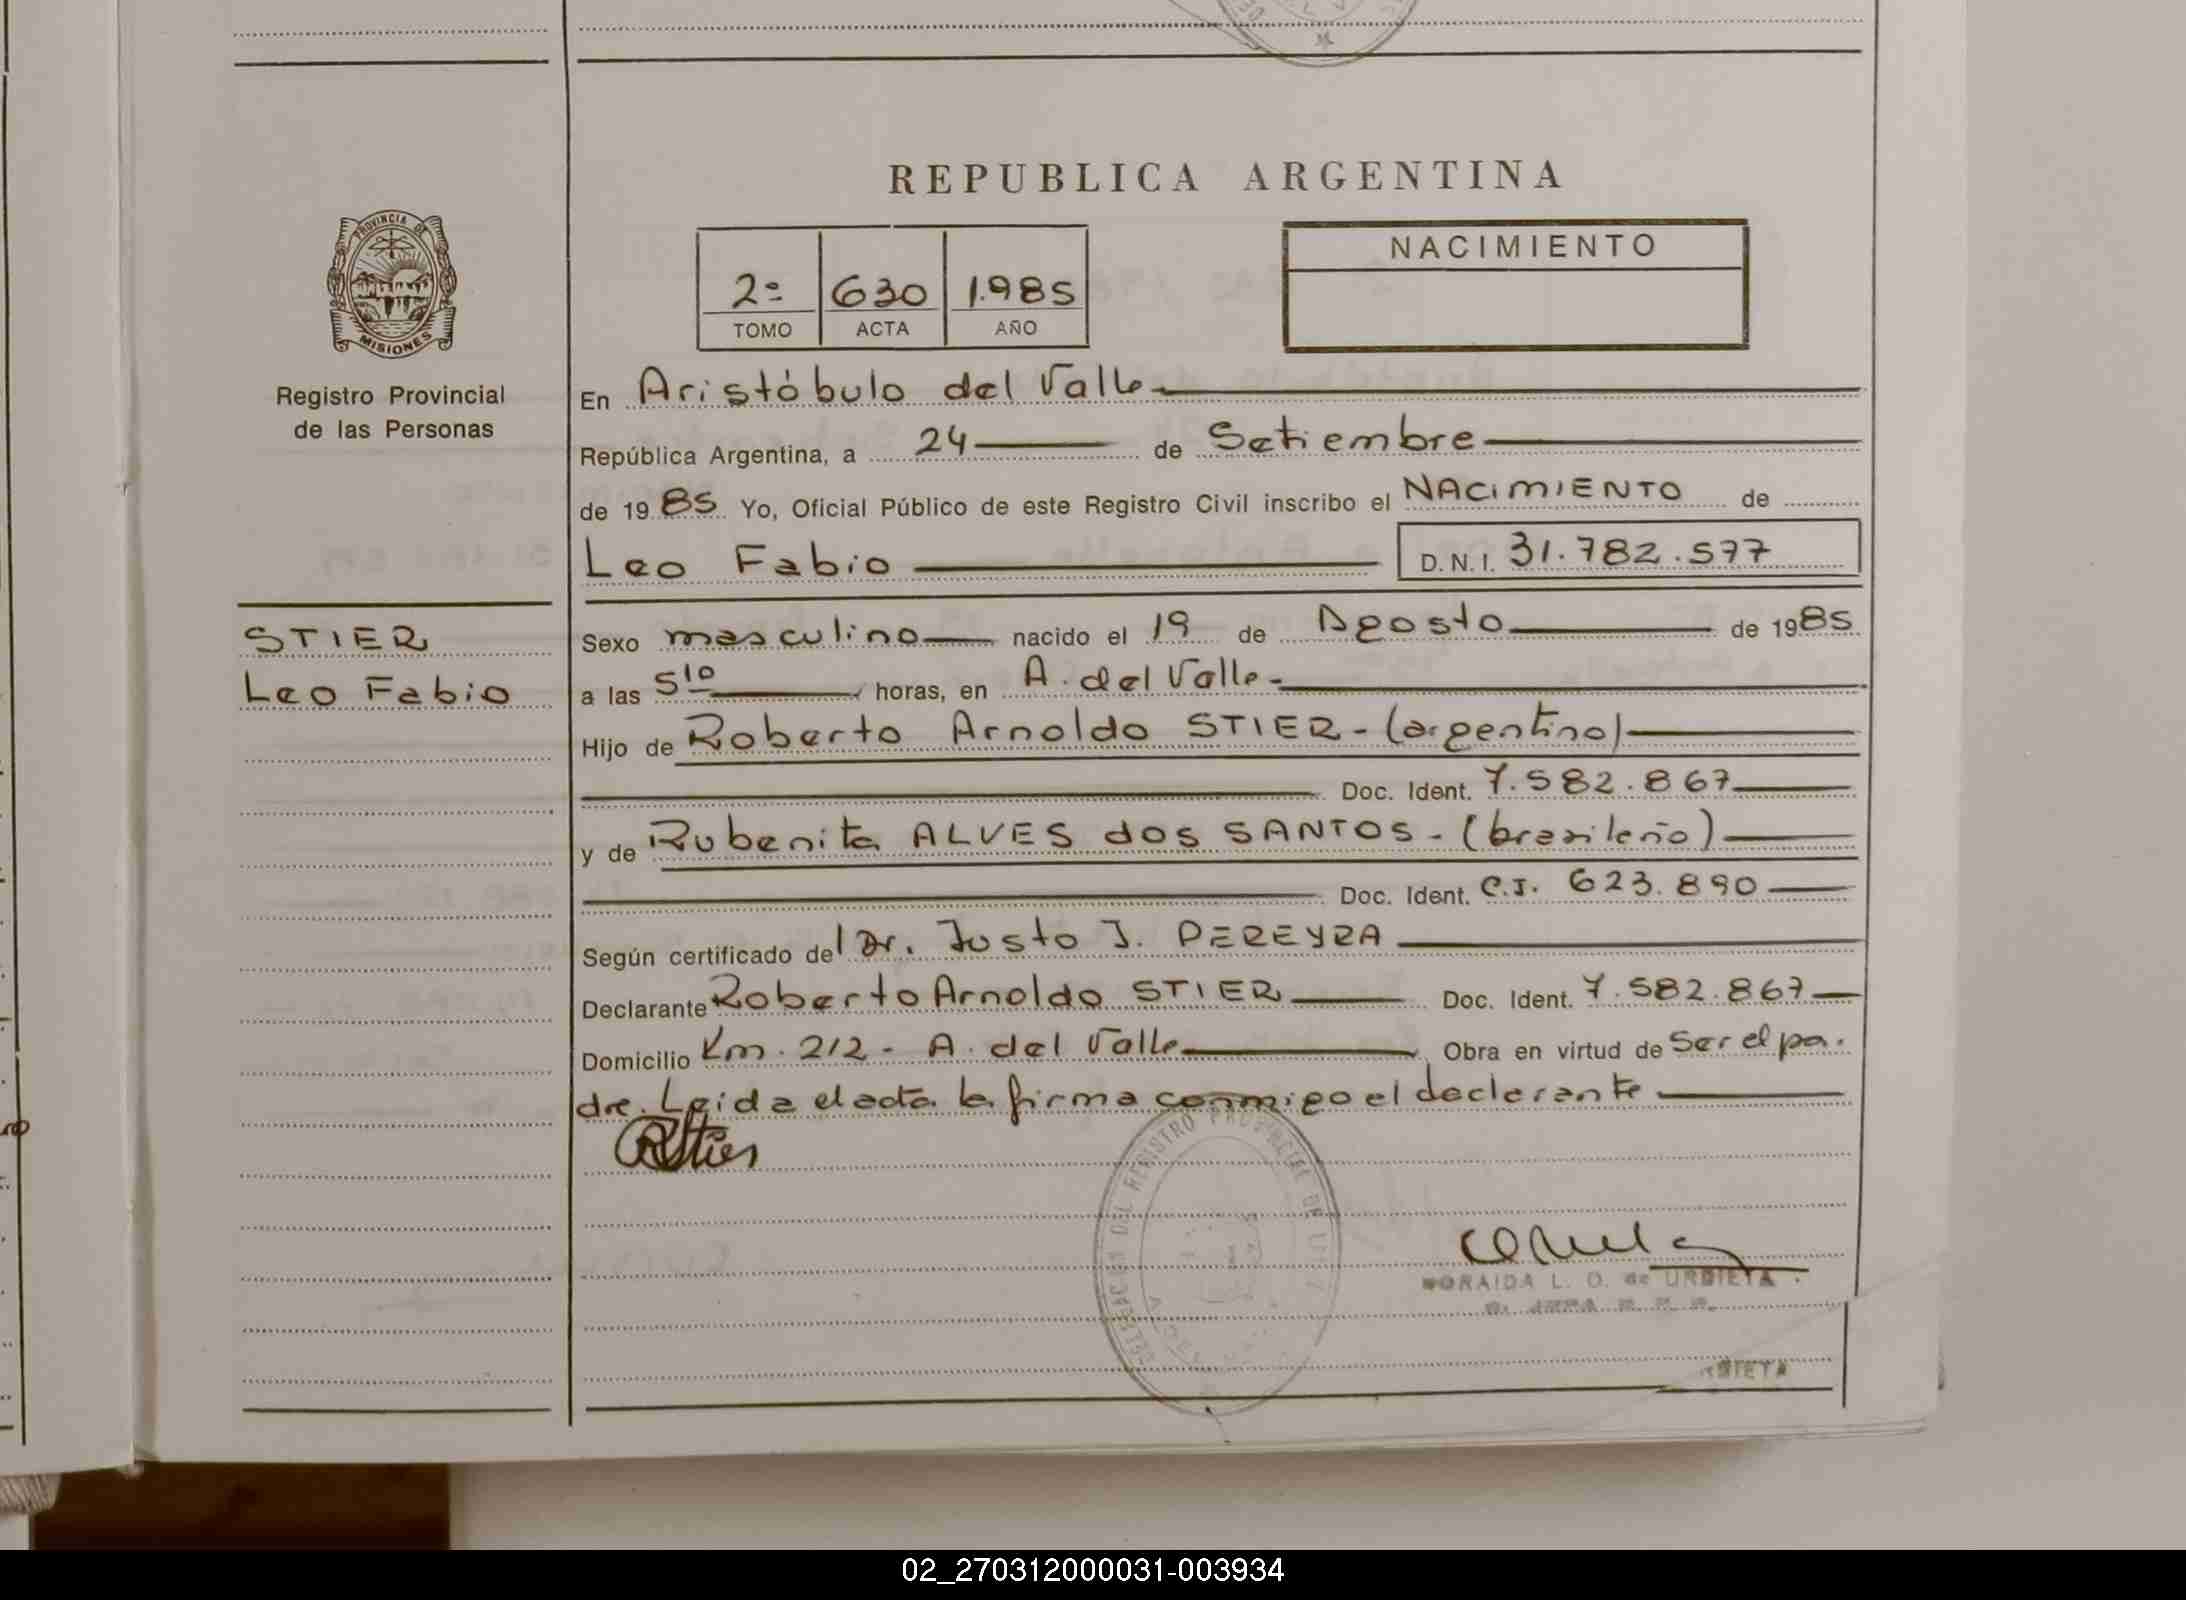 REPUBLICA ARGENTINA
PROVINCIA DE
MISIONES
Registro Provincial
de las Personas
2º 630 1.985
TOMO ACTA AÑO
NACIMIENTO
En Aristóbulo del Valle
República Argentina, a 24 de Setiembre
de 19 85 Yo, Oficial Público de este Registro Civil inscribo el NACIMIENTO de
Leo Fabio D.N.I. 31.782.577
STIER
Leo Fabio
Sexo masculino nacido el 19 de Agosto de 1985
a las 5¹⁰ horas, en A. del Valle
Hijo de Roberto Arnoldo STIER - (argentino)
Doc. Ident. 7.582.867
y de Rubenita ALVES dos SANTOS - (brasileño)
Doc. Ident. C.I. 623.890
Según certificado del Dr. Justo J. PEREYRA
Declarante Roberto Arnoldo STIER Doc. Ident. 7.582.867
Domicilio Km. 212 - A. del Valle Obra en virtud de Ser el pa.
dre. Leida el acta la firma conmigo el declarante
RStier
DEL REGISTRO PROVINCIAL DE
NORAIDA L. O. de URDIETA
DIETA
02_270312000031-003934